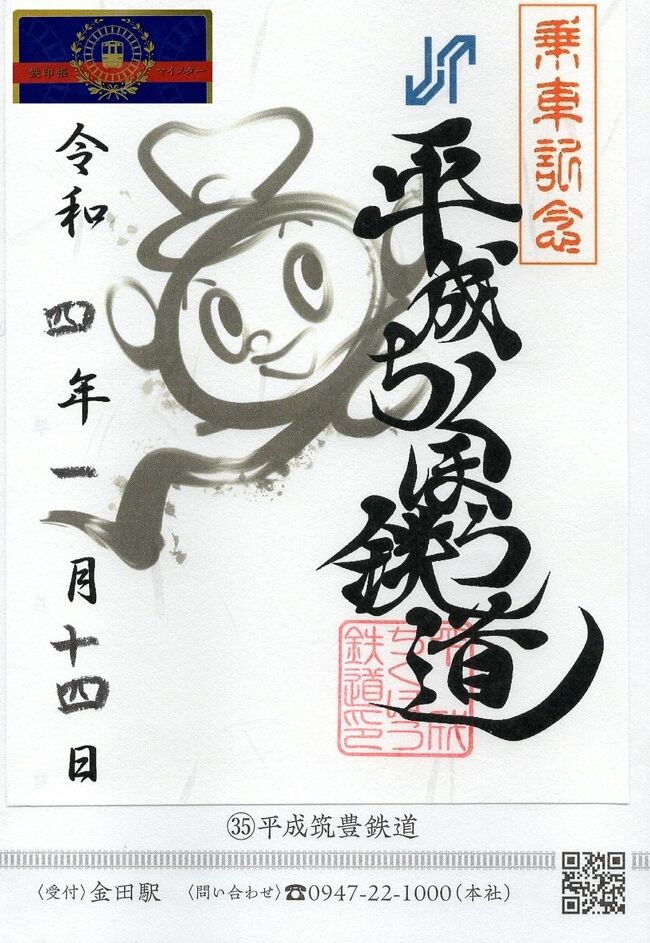 乗車記念
平成ちくほう鉄道
平成
ちくほう
鉄道印
令和 四年 一月 十四日
鉄印帳 マイスター
㉟平成筑豊鉄道
〈受付〉金田駅 〈問い合わせ〉☎0947-22-1000(本社)